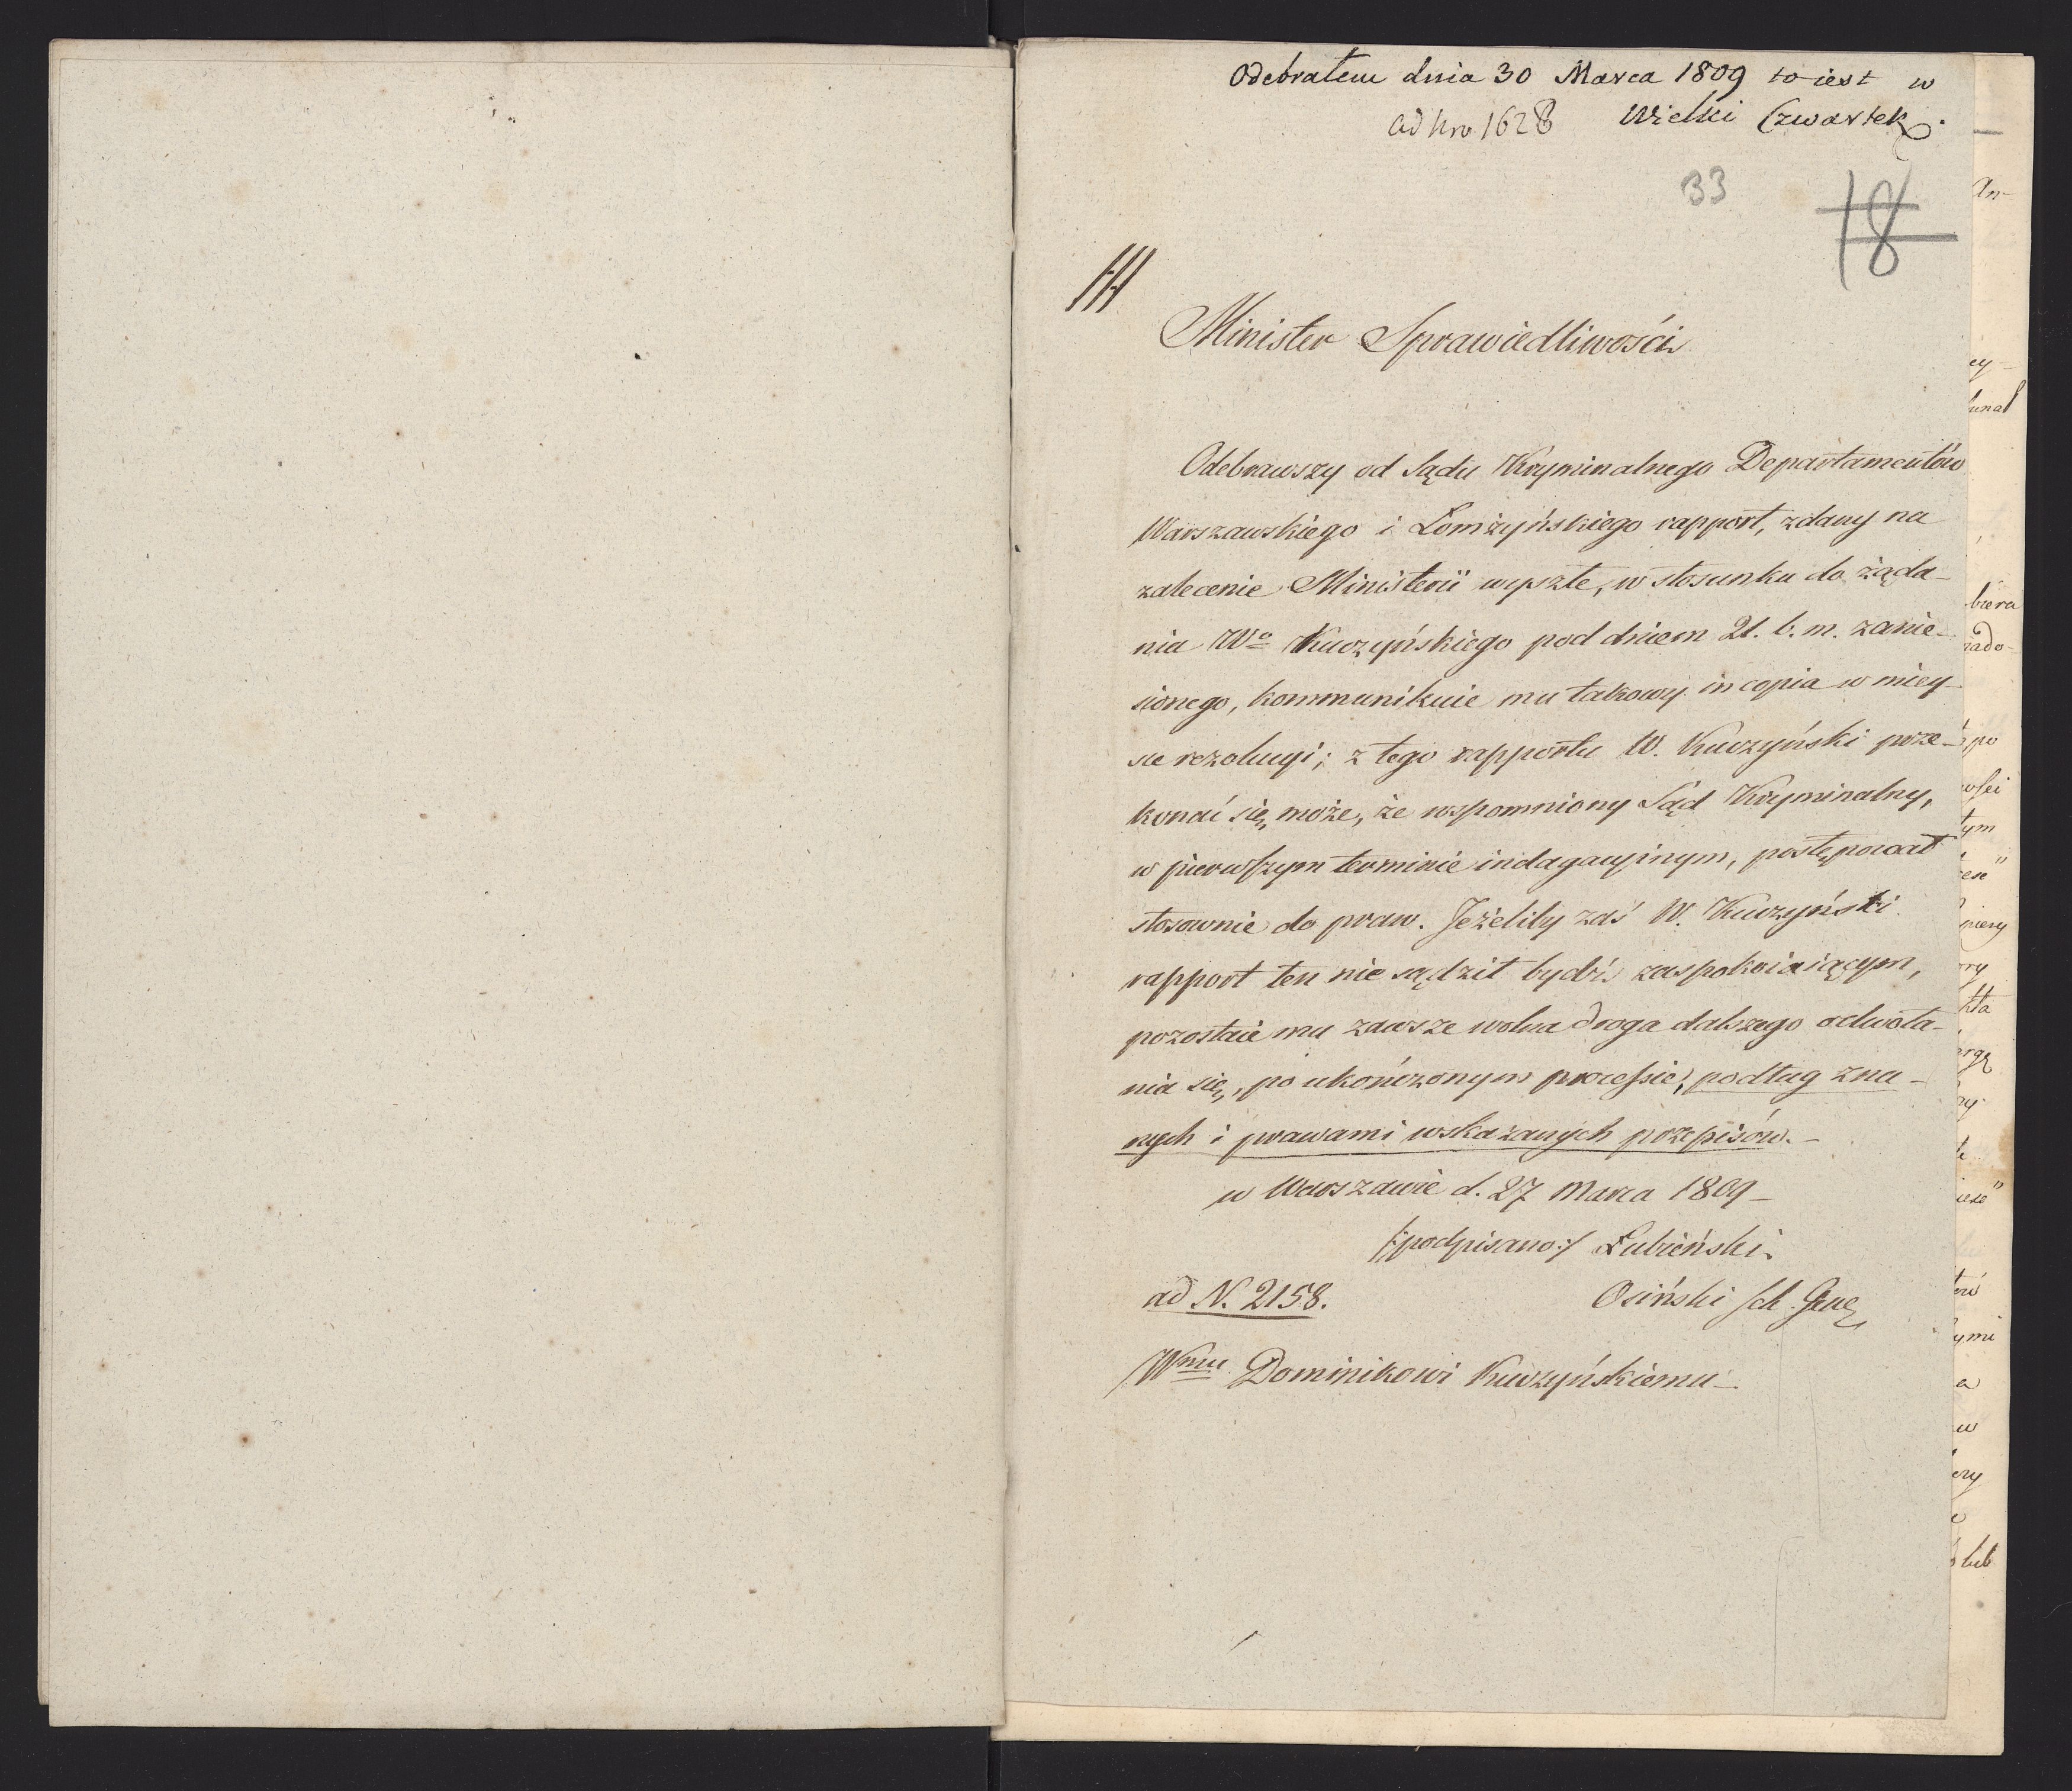 Odebrałem dnia 30 Marca 1809 to iest w
ad Nro 1628 Wielki Czwartek.
33
18
Minister Sprawiedliwości
Odebrawszy od Sądu Kryminalnego Departamentów
Warszawskiego i Łomżyńskiego rapport, zdany na
zalecenie Ministerii wyszłe, w stosunku do żąda-
nia Wo Kuczyńskiego pod dniem 21. b. m. zanie-
sionego, kommunikuie mu takowy in copia w miey-
sce rezolucyi; z tego rapportu W. Kuczyński prze-
konać się może, że wspomniony Sąd Kryminalny,
w pierwszym terminie indagacyinym, postępował
stosownie do praw. Jeżeliby zaś W. Kuczyński
rapport ten nie sądził bydź zaspokoiaiącym,
pozostaie mu zawsze wolna droga dalszego odwoła-
nia się, po ukończonym processie, podług zna-
nych i prawami wskazanych przepisów.-
w Warszawie d. 27 Marca 1809-
/:podpisano:/ Łubieński
ad N. 2158. Osiński Sek. Gen
Wmu Dominikowi Kuczyńskiemu-